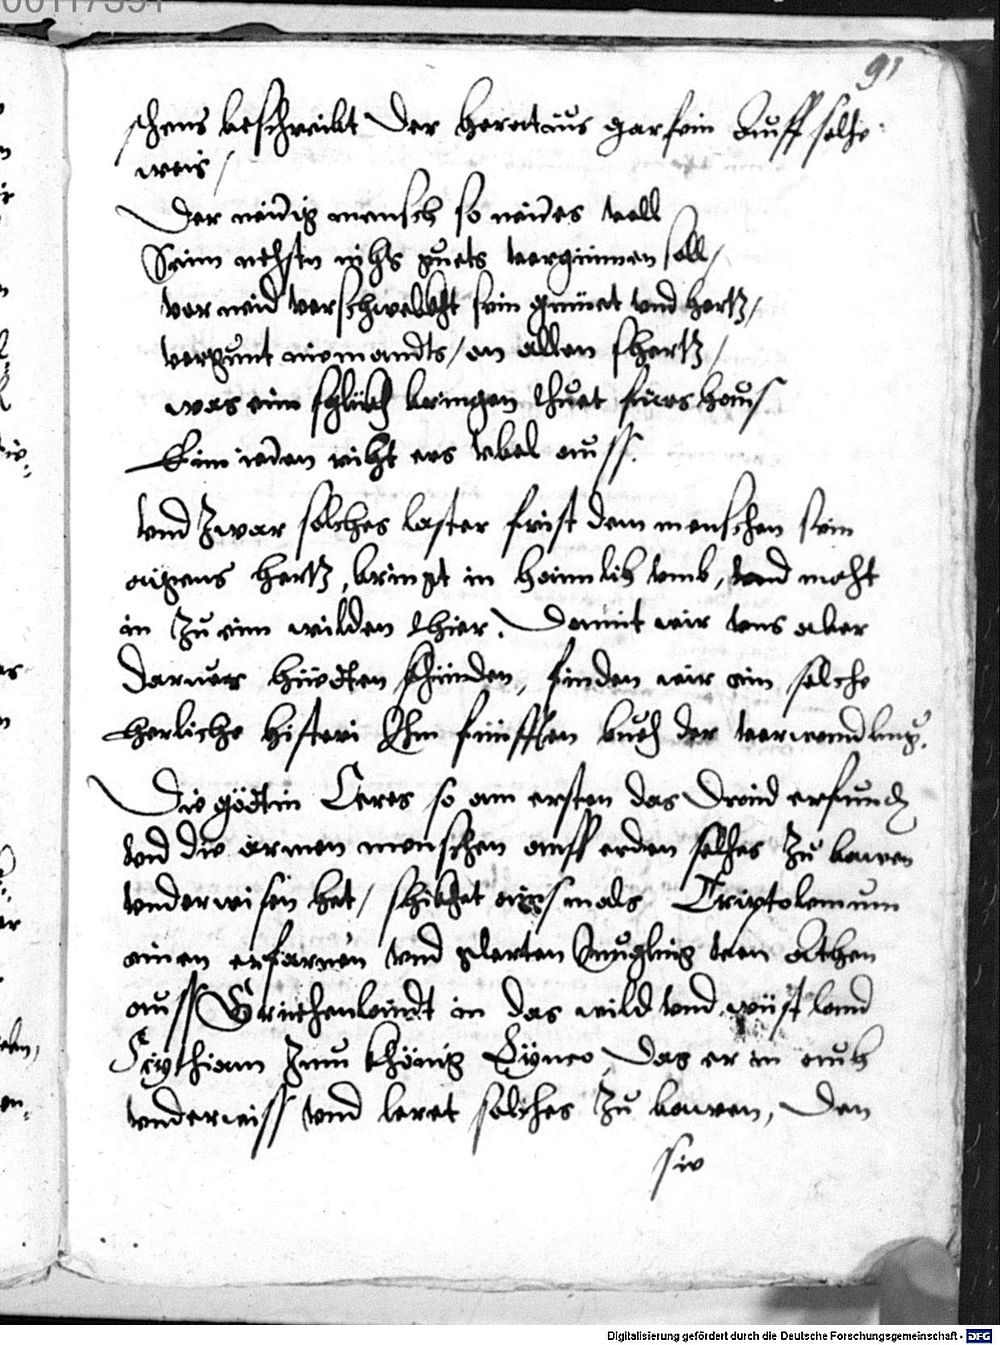 00117391
91
schens beschreibt Der Horatius gar fein Auff solche
weis /
Der neidig mensch so neides voll
Seim nehsten nihs guets vergünnen soll /
vor neid verschwelkht sein gmüet vnd hertz /
vergunt niemandts / on allen schertz /
was eim glükh bringen thuet fürs haus
Eim ieden riht ers vbel auss.
vnd zwar solches laster frist dem menschen sein
aigens hertz, bringt in haimlih vmb, vnd maht
in zu eim wilden thier. Damit wir vns aber
daruor hüedten khünden, finden wir ein solche
herliche histori Jhm fünfften buch der verwandlung.
Die gödtin Ceres so am ersten das Draid erfunden
vnd die armen menschen auff erden solhes zu bawen
vnderwisen hat / schikhet ains mals Triptolemum
einen erfarnen vnd glerten Jüngling von Athen
auss Griechenlandt in das wild vnd wüst land
Scythiam zum khönig Lynco, das er in auch
vnderweiss vnd leret solches zu bawen, Den
sie
Digitalisierung gefördert durch die Deutsche Forschungsgemeinschaft - DFG